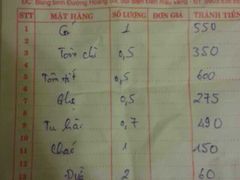 STT MẶT HÀNG SỐ LƯỢNG ĐƠN GIÁ THÀNH TIỀN
1 Gỏ 1 550
3 Tôm chì 0,5 350
5 Tôm tít 0,5 600
7 Ghẹ 0,5 275
9 Tu hài 0,7 490
11 Cháo 1 150
2 60